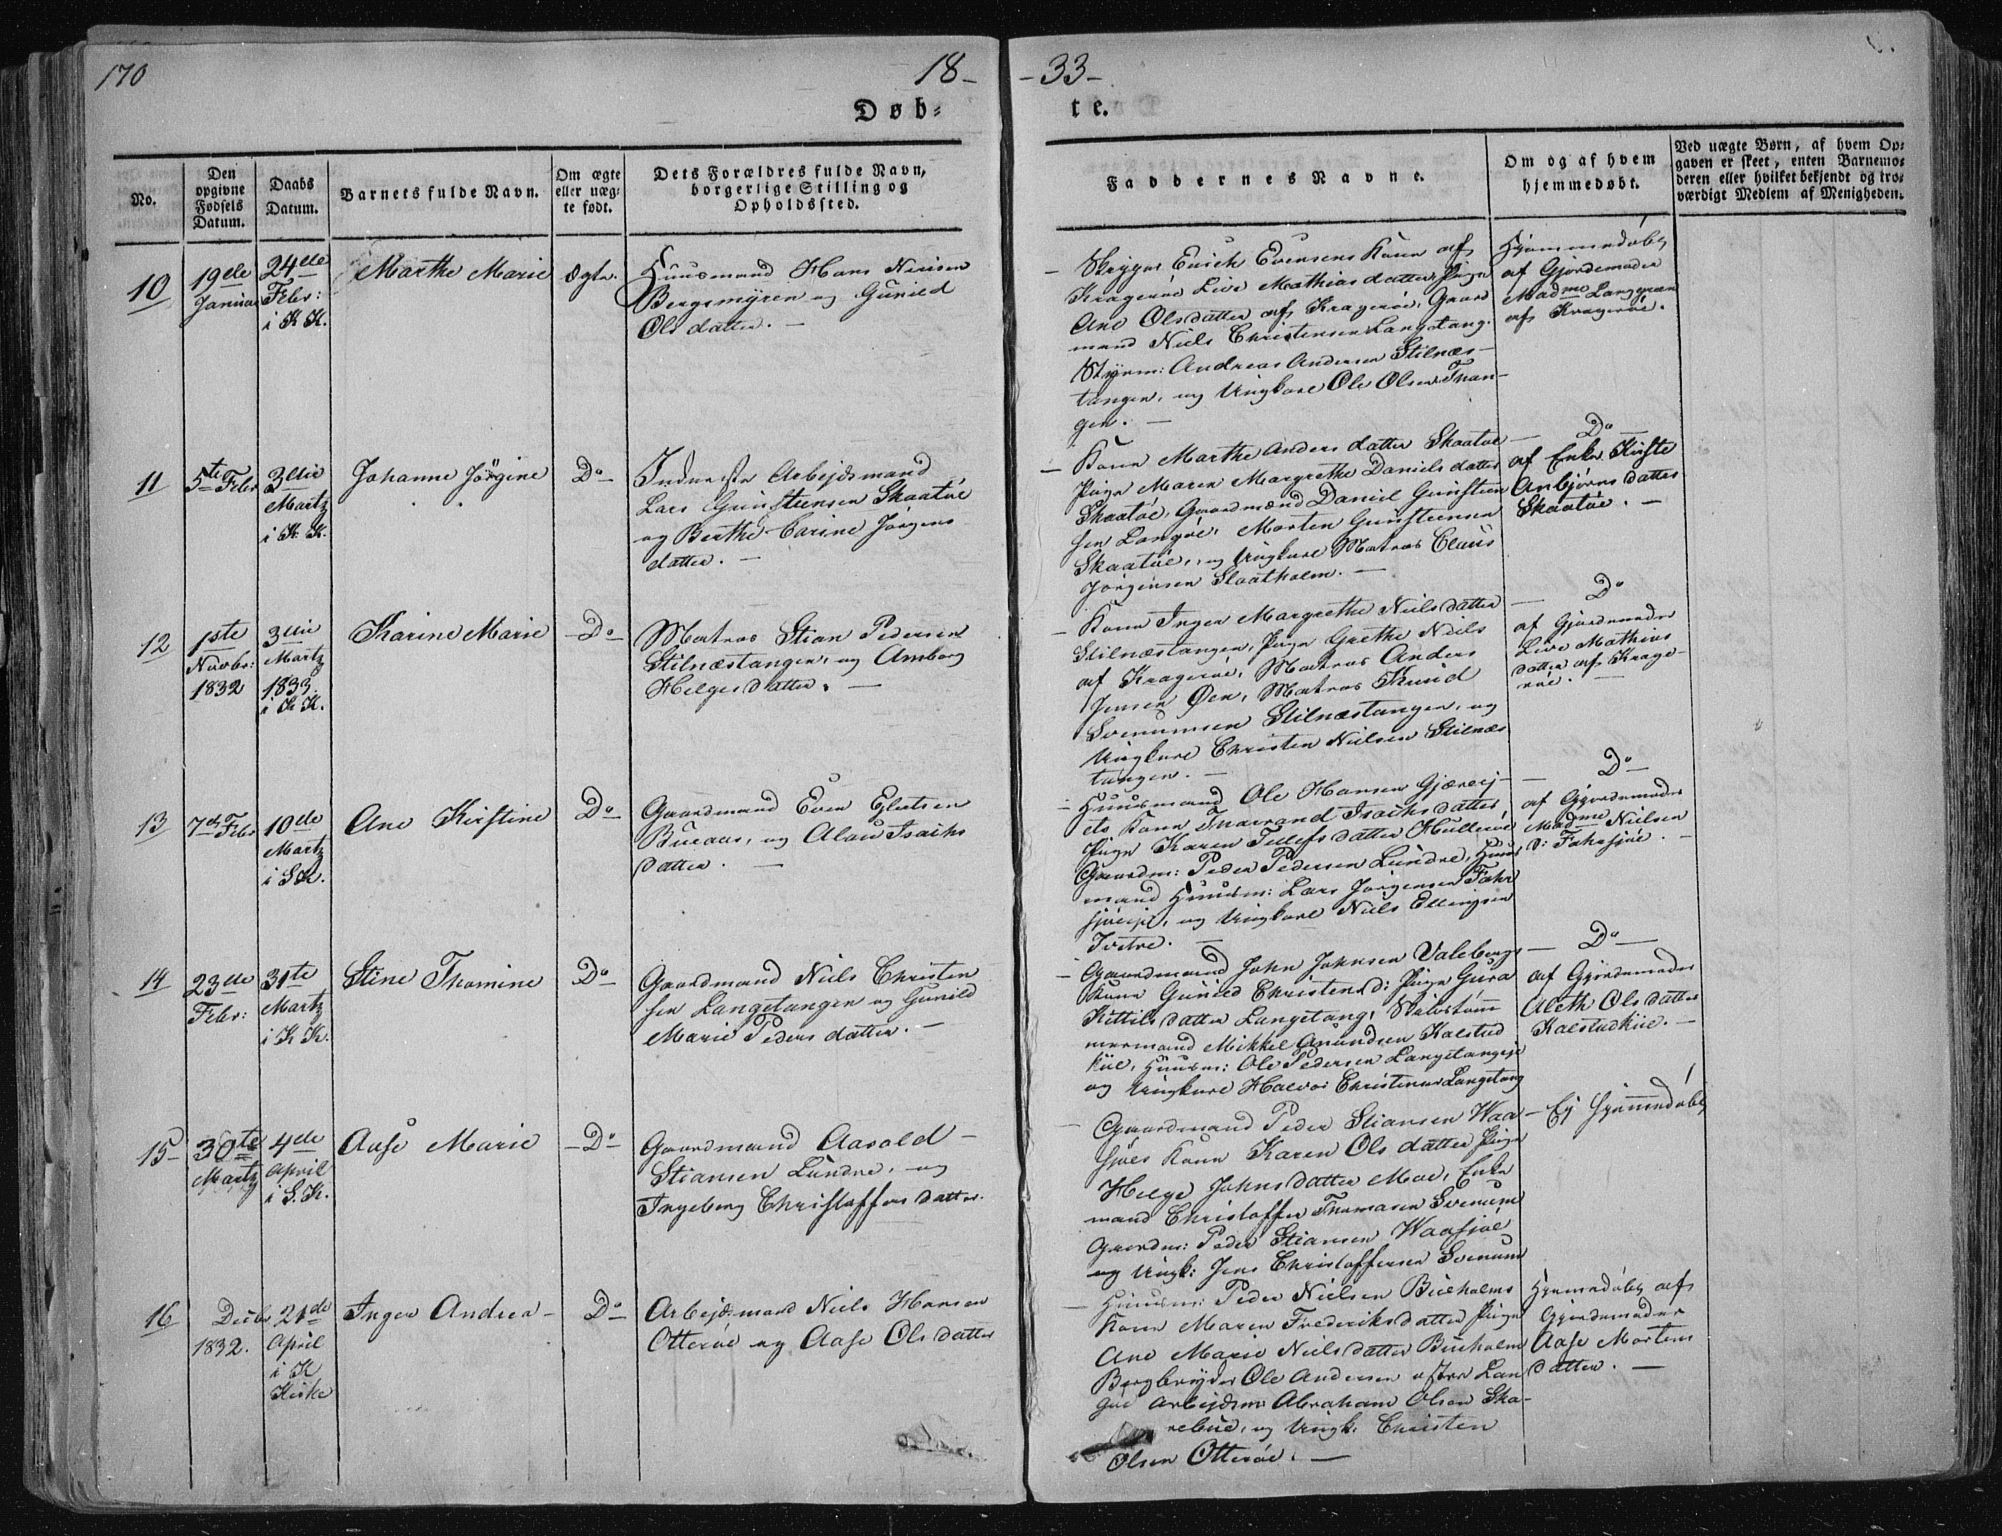 170
18-
-33-
Døb-
te.
No.
Den
opgivne
Fødsels
Datum.
Daabs
Datum.
Barnets fulde Navn.
Om ægte
eller uæg-
te født.
Dets Forældres fulde Navn,
borgerlige Stilling og
Opholdssted.
Faddernes Navne.
Om og af hvem
hjemmedøbt.
Ved uægte Børn, af hvem Op-
gaven er skeet, enten Barnemo-
deren eller hvilket bekjendt og tro-
værdigt Medlem af Menigheden.
10
19de
Januar
24de
Febr:
i K K.
Marthe Marie
Ægte.
Huusmand Hans Nielsen
Bergsmyren og Gunild
Olsdatter. -
Enich Evensens Kone af
Kragerøe, Live Mathiasdatter, Pige
Ane Olsdatter af Kragerøe, Gaard
mand Niels Christensen Langetang.
Styrm: Andreas Andersen Stilnæs-
tangen, og Ungkarl Ole Olsen Tan-
gen. -
Hjemmedøbt
af Gjordemoder
Madme Langeman
af Kragerøe.
11
5te Febr
3die
Martz
i K. K.
Johanne Jörgine
Do
Inderste Arbejdsmand
Lars Gunsteensen Skaatöe
og Berthe Carine Jörgens
datter. -
- Kone Marthe Andersdatter Skaatöe
Pige Maren Margrethe Danielsdatter
Skaatöe, Gaardmænd Daniel Gunsteen
sen Langöe, Morten Gunsteensen
Skaatöe, og Ungkarl Matros Claus
Jörgensen Slaatholm. -
- Do -
af Enke Kirste
Anbjörnsdatter
Skaatöe. -
12
1ste
Novbr:
1832
3die
Martz
1833.
i K K.
Karine Marie
Do
Matros Stian Pedersen
Stilnæstangen, og Amborg
Helgesdatter. -
- Kone Inger Margrethe Nielsdatter
Stilnæstangen, Pige Grethe Niels
af Kragerøe, Matros Anders
Jensen Øen, Matros Knud
Svenumsen Stilnæstangen, og
Ungkarl Christen Nielsen Stilnæs
tangen. -
- Do
af Gjordemoder
Live Mathias
datter af Krage-
røe. -
13
7de Febr
10de
Martz
i S K.
Ane Kirstine
Do
Gaardmand Even Evertsen
Bueaas, og Alau Isachs
datter. -
- Huusmand Ole Hansen Gjærvej-
ets Kone Isachsdatter,
Pige Karen Tellefsdatter Hulleröe
Gaardm: Peder Pedersen Lundre, Huus
mand Huusm: Lars Jörgensen Fahr
sjöeeje, og Ungkarl Niels Ellingsen
Tvetre. -
- Do -
af Gjordemoder
Madme Nielsen
d: Fahrsjöe. -
14
23de
Febr:
31te
Martz
i K K.
Stine Thomine
Do
Gaardmand Niels Christen
sen Langetangen og Gunild
Marie Pedersdatter. -
- Gaardmand John Johnsen Valebergs
Kone Gunild Christensd: Pige Gura
Kittilsdatter Langetang, Skibstöm
mermand Mikkel Amundsen Kalstad
kile, Huusm: Ole Pedersen Langetangeje
og Ungkarl Halvor Christensen Langetang
- Do -
af Gjordemoder
Aleth Olsdatter
Kalstadkile. -
15
30te
Martz
4de
April
i S. K.
Aase Marie
Do
Gaardmand Aasold -
Stiansen Lundre, og
Ingeborg Christoffersdatter.
- Gaardmand Peder Stiansen Waa
sjöes Kone Karen Olsdatter, Pige
Helge Johnsdatter Moe, Enke
mand Christoffer Thomasen Svenum
Gaardm: Peder Stiansen Waasjöe
og Ungk: Jens Christoffersen Svenum
- Ej hjemmedöbt
16
Decbr
1832.
21de
April
i K
Kirke
Inger Andrea -
Do
Arbejdsmand Niels Hansen
Otteröe og Aase Olsdatter
- Huusm: Peder Nielsen Bueholms
Kone Maren Frederiksdatter, Pige
Ane Marie Nielsdatter Bueholm
Bergbryder Ole Andersen Lan
göe Arbejdsm: Abraham Olsen Ska-
rebue, og Ungk. Christen
Olsen Otteröe. -
Hjemmedöbt af
Gjordemoder
Aase Mortens
datter. -